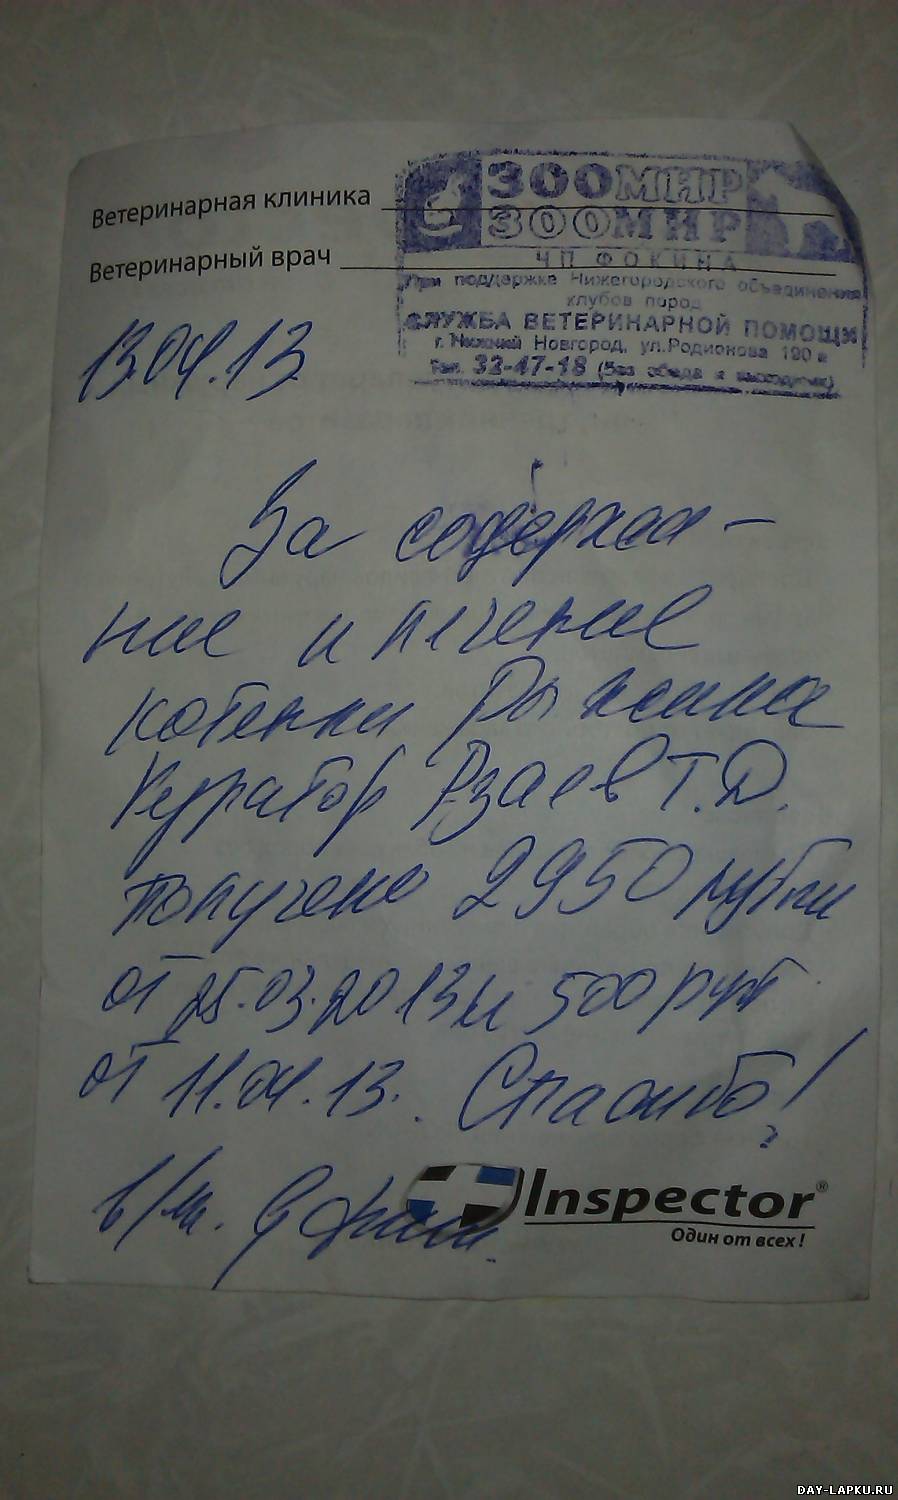 Ветеринарная клиника
ЗООМИР
ЗООМИР
Ветеринарный врач
ЧП ФОКИНА
При поддержке Нижегородского объединения
клубов пород
СЛУЖБА ВЕТЕРИНАРНОЙ ПОМОЩИ
г. Нижний Новгород, ул.Родионова 190 а
Тел. 32-47-18 (Без обеда и выходных)
13.04.13
За содержа-
ние и лечение
котенка Рыжика
Куратор Рзаев Т.Д.
получено 2950 рубли
от 25.03.2013 и 500 руб
от 11.04.13. Спасибо!
в/м.
Inspector®
Один от всех!
DAY-LAPKU.RU